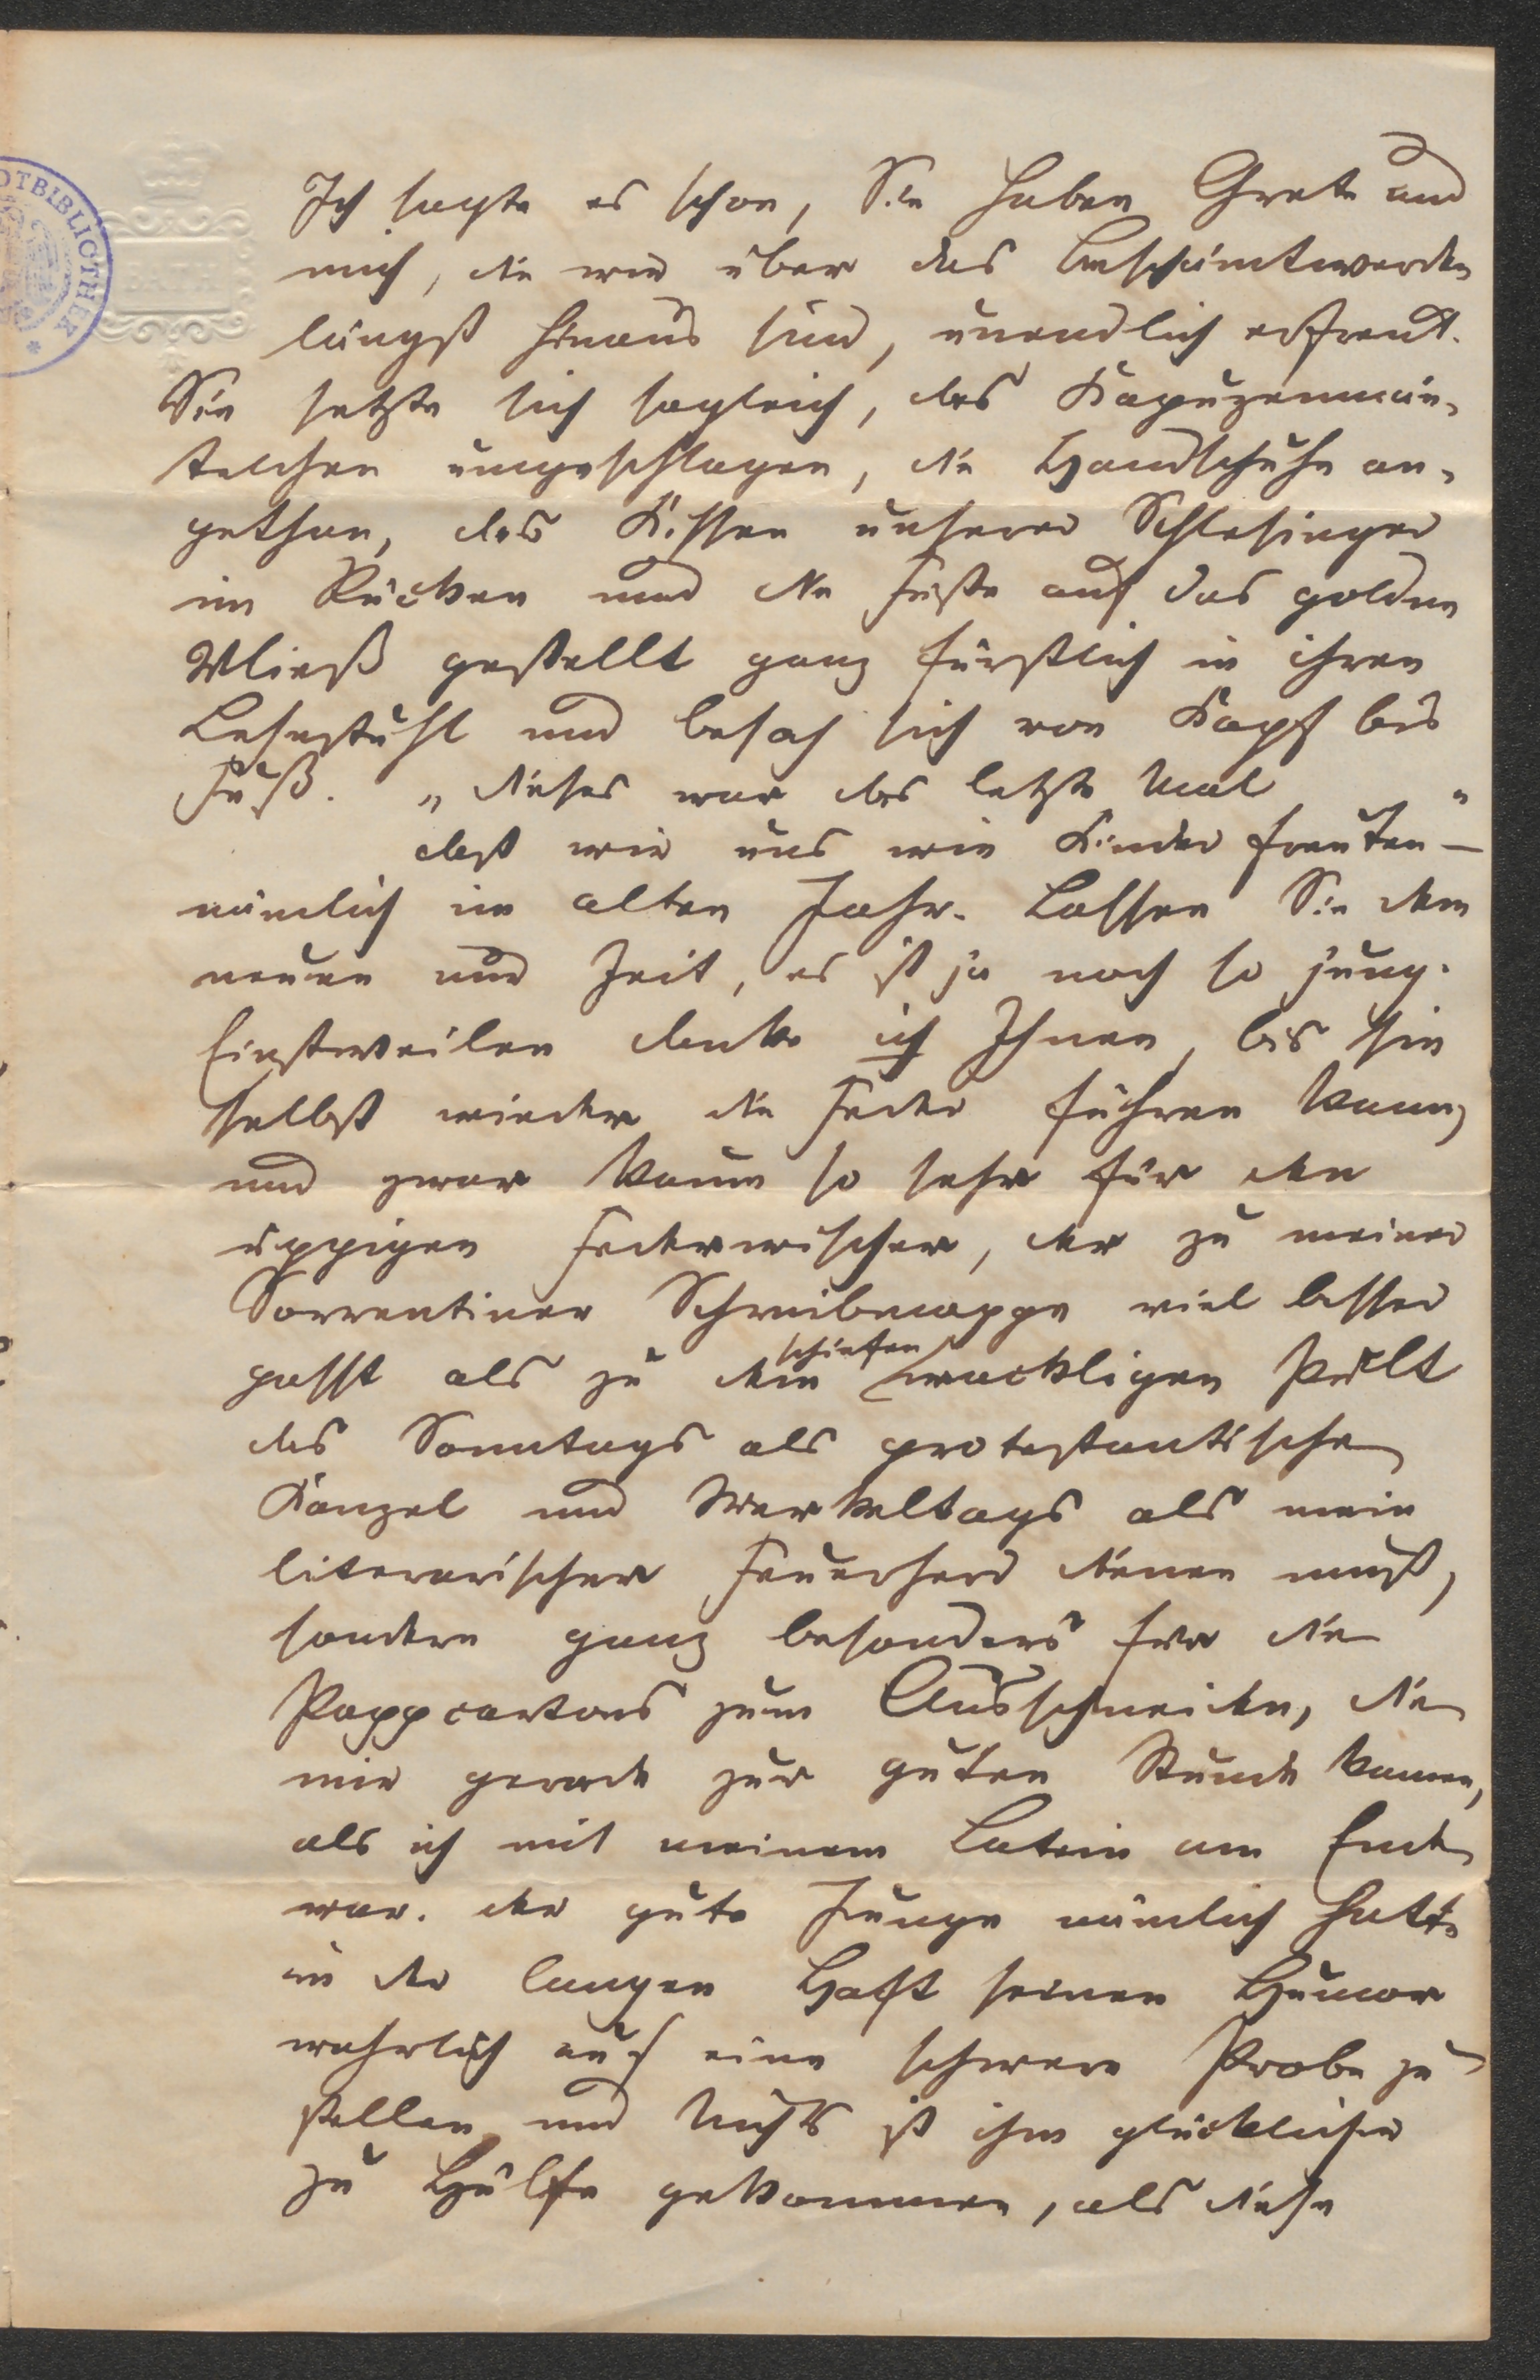 Ich sagte es schon, Sie haben Grete und
mich, die wir über das Beschämtwerden
längst hinaus sind, unendlich erfreut.
Sie setzte sich sogleich, das Kapuzenmän-
telchen umgeschlagen, die Handschuhe an-
gethan, das Kissen unserer Schlesinger
im Rücken und die Füße auf das goldne
Vließ gestellt ganz fürstlich in ihren
Lehnstuhl und besah sich von Kopf bis
Fuß. „Dieses war das letzte Mal,"
daß wir uns wie Kinder freuten —
nämlich im alten Jahr. Lassen Sie dem
neuen nur Zeit, es ist ja noch so jung.
Einstweilen danke ich Ihnen, bis sie
selbst wieder die Feder führen kann,
und zwar kaum so sehr für den
üppigen Federwischer, der zu meiner
Sorrentiner Schreibmappe viel besser
passt als zu dem schiefen wackligen Pult
das Sonntags als protestantische
Kanzel und Werkeltags als mein
literarischer Feuerherd dienen muß,
sondern ganz besonders für die
Pappcartons zum Ausschneiden, die
mir gerade zur guten Stunde kamen,
als ich mit meinem Latein am Ende
war. Der gute Junge nämlich hatte
in der langen Haft seinen Humor
wahrlich auf eine schwere Probe zu
stellen und Nichts ist ihm glücklicher
zu Hülfe gekommen, als diese
OTBIBLIOTHEK